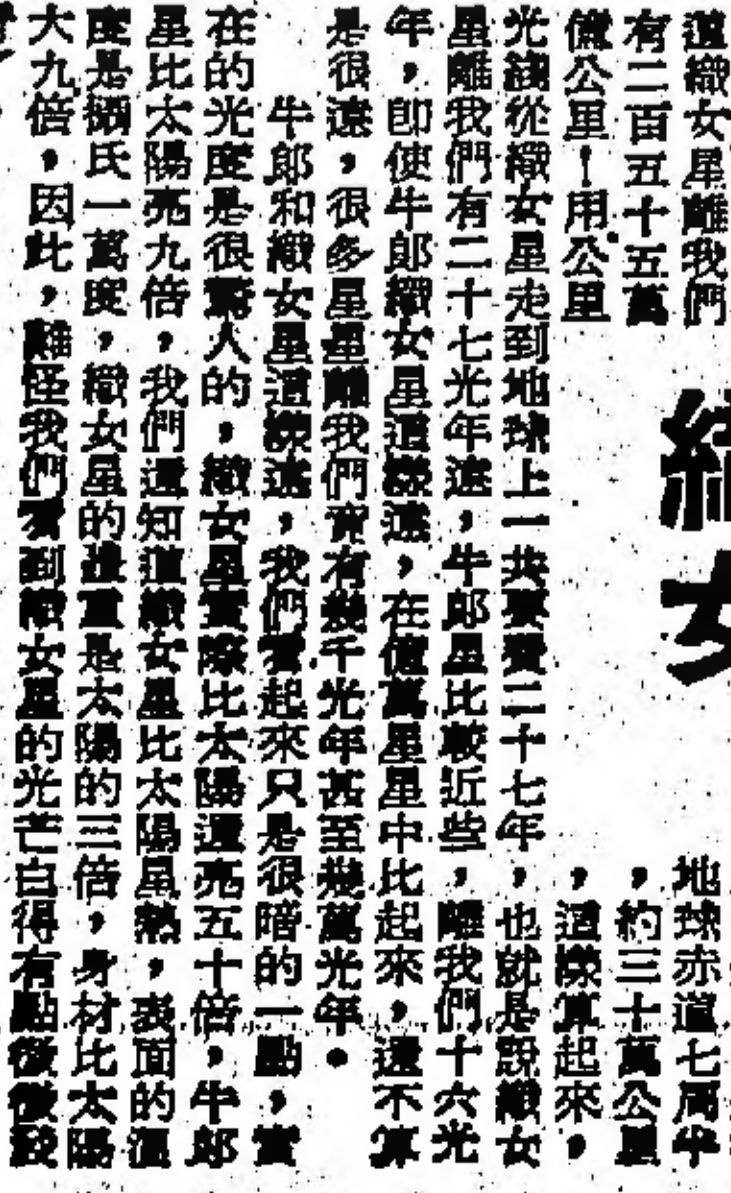 道織女星離我們
有二百五十五萬
億公里！用公里
織女
地球赤道七周半
，約三十萬公里
，這樣算起來，
光綫從織女星走到地球上一共要費二十七年，也就是說織女
星離我們有二十七光年遠，牛郎星比較近些，離我們十六光
年，即使牛郎織女星這樣遠，在億萬星星中比起來，還不算
是很遠，很多星星離我們竟有幾千光年甚至幾萬光年。
牛郎和織女星這樣遠，我們看起來只是很暗的一點，實
在的光度是很驚人的，織女星實際比太陽還亮五十倍，牛郎
星比太陽亮九倍，我們還知道織女星比太陽星熱，表面的溫
度是攝氏一萬度，織女星的體重是太陽的三倍，身材比太陽
大九倍，因此，難怪我們看到織女星的光芒白得有點微微發